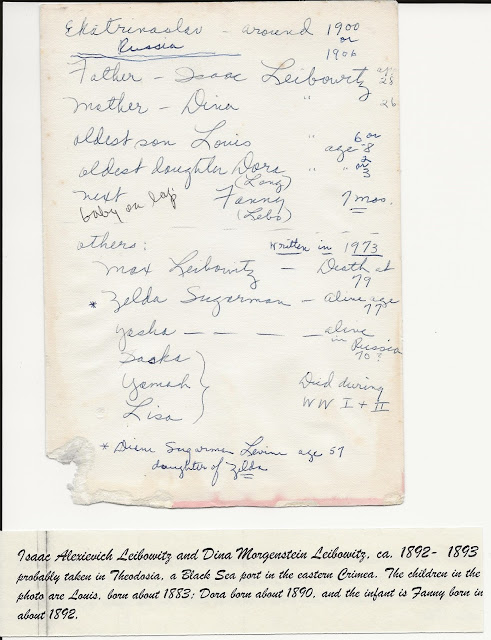 Ekatrinaslav - around 1900
Russia or
1906
Father - Isaac Leibowitz age 28
Mother - Dina " 26
oldest son Louis " age 6 or 8
oldest daughter Dora " " 2 or 3
(Long)
next Fanny 7 mos.
baby on lap (Lebo)
others: written in 1973
Max Leibowitz - Death at 79
* Zelda Sugarman - alive age 77
Yasha - - - - alive
in Russia
70?
Saska
Yamah } Died during
Lisa WW I + II
* Diane Sugarman Levine age 57
daughter of Zelda
Isaac Alexievich Leibowitz and Dina Morgenstein Leibowitz, ca. 1892- 1893
probably taken in Theodosia, a Black Sea port in the eastern Crimea. The children in the
photo are Louis, born about 1883; Dora born about 1890, and the infant is Fanny born in
about 1892.